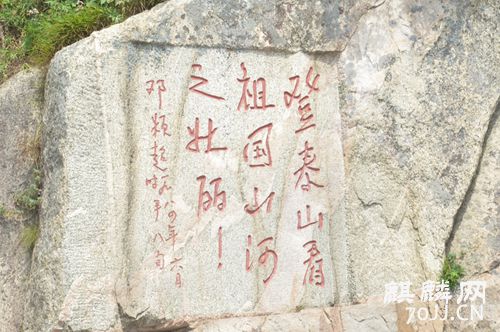 登泰山看
祖国山河
之壮丽！
邓颖超 一九八四年六月
时年八旬
麒麟网
70JJ.COM